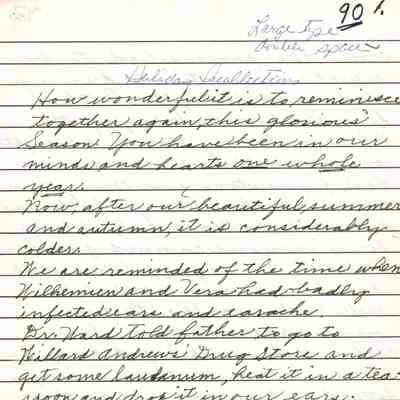 90%
Large type
double space
Holiday Recollections
How wonderful it is to reminisce
together again, this glorious
Season. You have been in our
minds and hearts one whole
year.
Now, after our beautiful, summer
and autumn, it is considerably
colder.
We are reminded of the time when
Wilhemien and Vera had badly
infected ears and earache.
Dr. Ward told father to go to
Willard Andrews' Drug Store and
get some laudanum, heat it in a tea-
spoon and drop it in our ears.